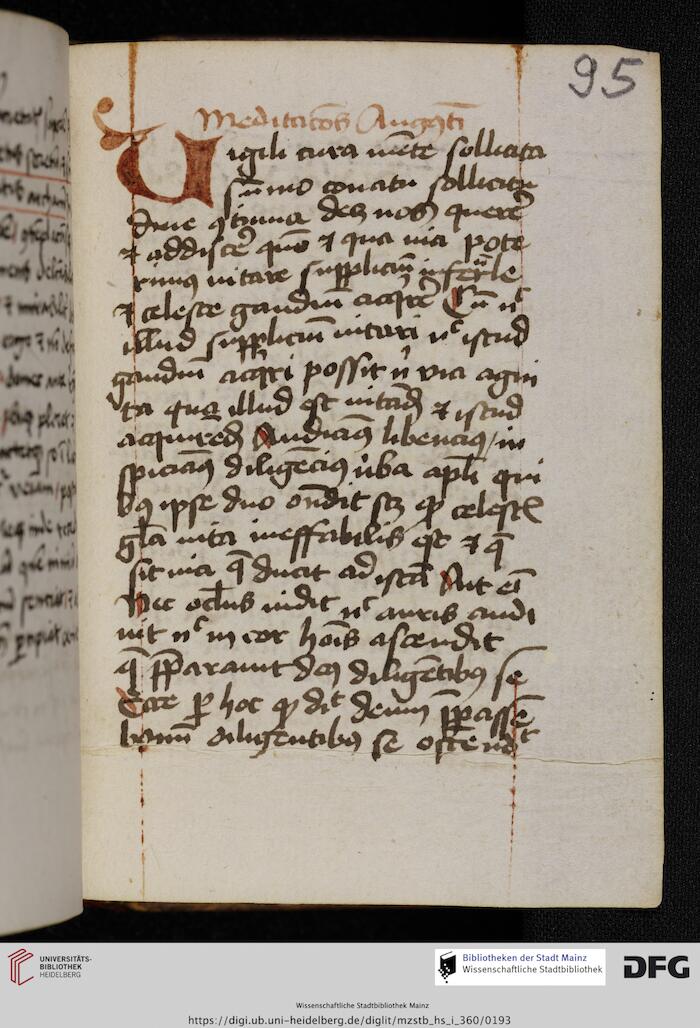 95
Meditacōes Augustī
Vigili cura mēte sollicita
sūmo conatu sollicitu
dine ꝯtinua dꝫ nos querē
⁊ addiscē quō ⁊ qua uia pote
rimus uitare suppliciū infernale
⁊ celeste gaudiū acqrē Cū nᶜ
illud suppliciū uitari nᶜ istud
gaudiū acqri possit n̄ via agni
ta qua illud est uitādū ⁊ istud
acquirēdū Audiamꝰ libenciꝰ / in
spiciamꝰ diligēciꝰ ūba apłi qui
bꝰ ipse duo ondit scꝫ qͥ celestis
gła uita ineffabilis est ⁊ q̄
sit uia q̄ ducit ad istā Ait eī
Nec ocłus uidit nᶜ auris audi
uit nᶜ in cor hoīs ascendit
q̄ p̄parauit deꝰ diligētibꝰ se
Certe ꝑ hoc qͥ dīt deum p̄parasse
bonū diligentibꝰ se ostendᵗ
UNIVERSITÄTS-
BIBLIOTHEK
HEIDELBERG
Bibliotheken der Stadt Mainz
Wissenschaftliche Stadtbibliothek
DFG
Wissenschaftliche Stadtbibliothek Mainz
https://digi.ub.uni-heidelberg.de/diglit/mzstb_hs_i_360/0193